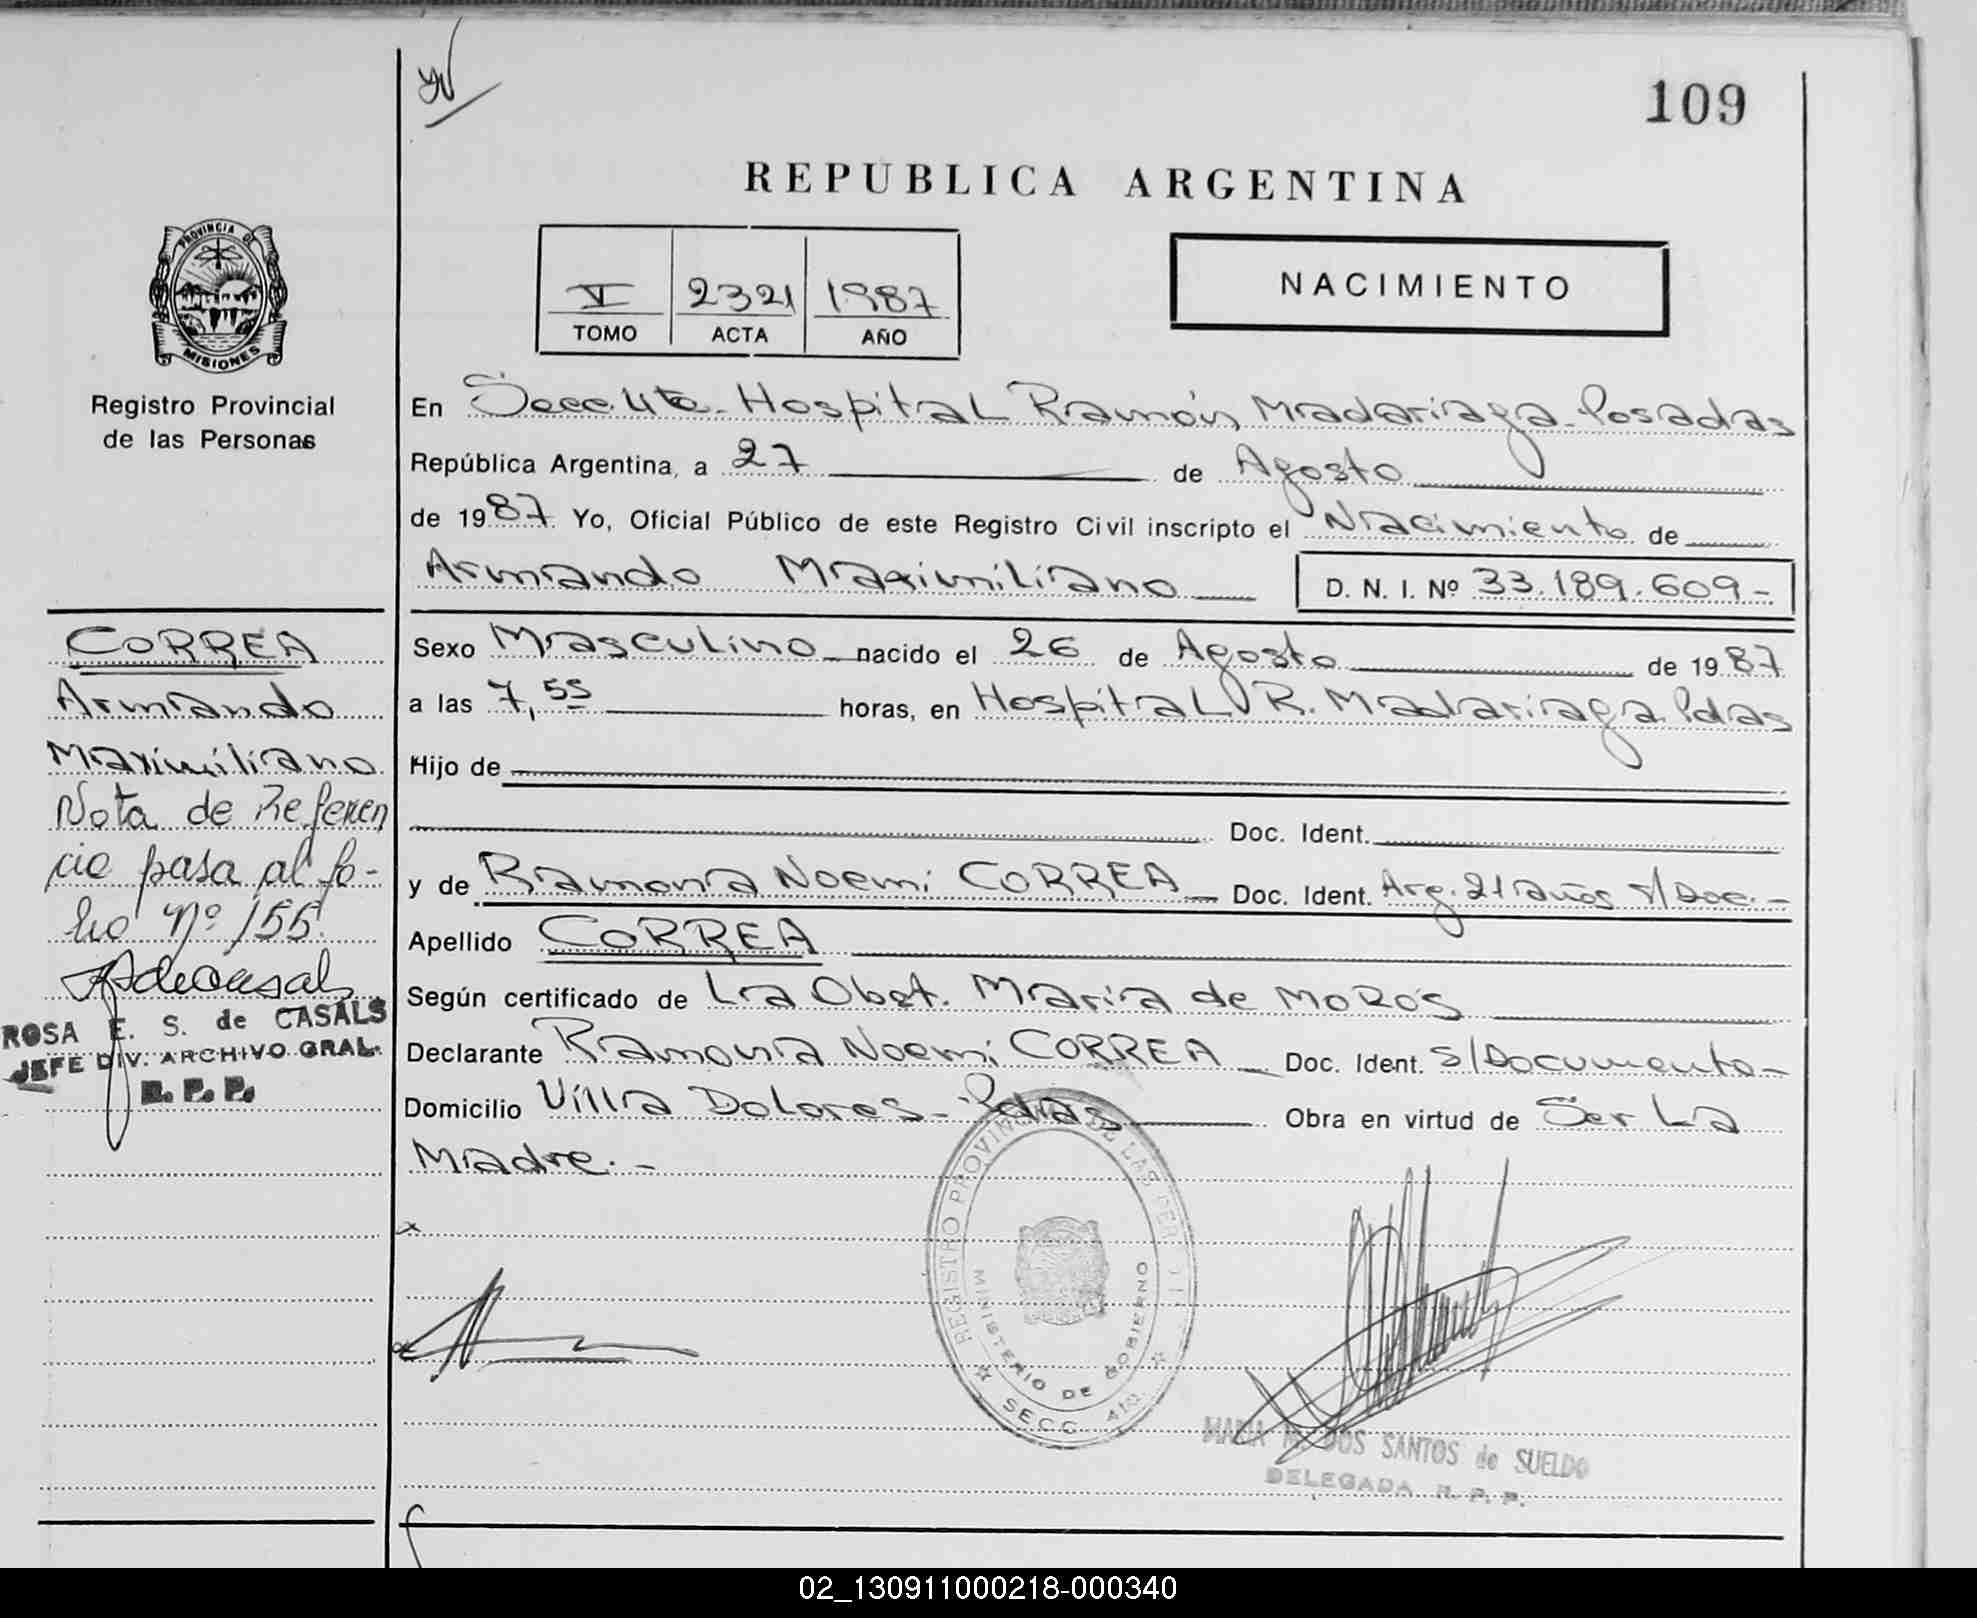 109
REPUBLICA ARGENTINA
PROVINCIA DE
MISIONES
Registro Provincial
de las Personas
V 2321 1987
TOMO ACTA AÑO
NACIMIENTO
En Secc. 4ta- Hospital Ramón Madariaga-Posadas
República Argentina, a 27 de Agosto
de 1987. Yo, Oficial Público de este Registro Civil inscripto el Nacimiento de
Armando Maximiliano D. N. I. Nº 33.189.609-
Sexo Masculino nacido el 26 de Agosto de 1987
a las 7,55 horas, en Hospital R. Madariaga Pdas
Hijo de
Doc. Ident.
y de Ramona Noemi CORREA Doc. Ident. Arg. 21 años s/Doc.-
Apellido CORREA
Según certificado de La Obst. María de MOROS
Declarante Ramona Noemi CORREA Doc. Ident. s/Documento-
Domicilio Villa Dolores-Pdas Obra en virtud de Ser La
Madre.-
CORREA
Armando
Maximiliano
Nota de Referen
cia pasa al fo-
lio Nº 155.
ROSA E. S. de CASALS
JEFE DIV. ARCHIVO GRAL.
R. P. P.
REGISTRO PROVINCIAL DE LAS PER
MINISTERIO DE GOBIERNO
SECC. 4ta.
MARIA DOS SANTOS de SUELDO
DELEGADA R. P. P.
02_130911000218-000340